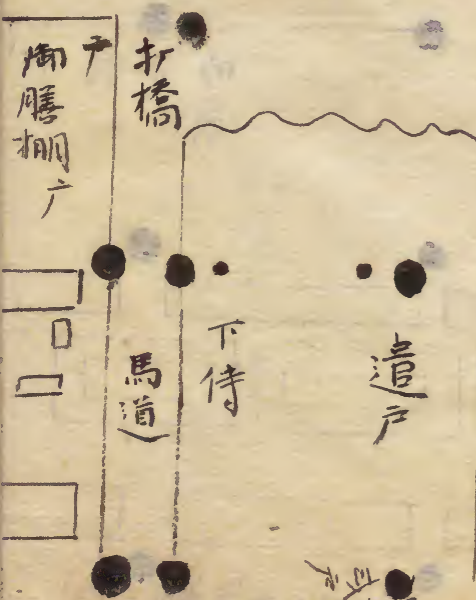 遣戸
下侍
打橋
馬道
戸
御膳棚